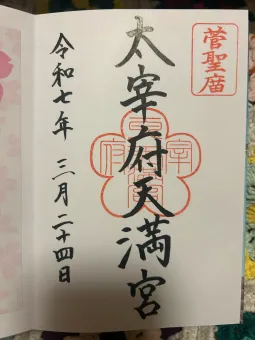 菅聖廟
太宰府天満宮
令和七年 三月二十四日